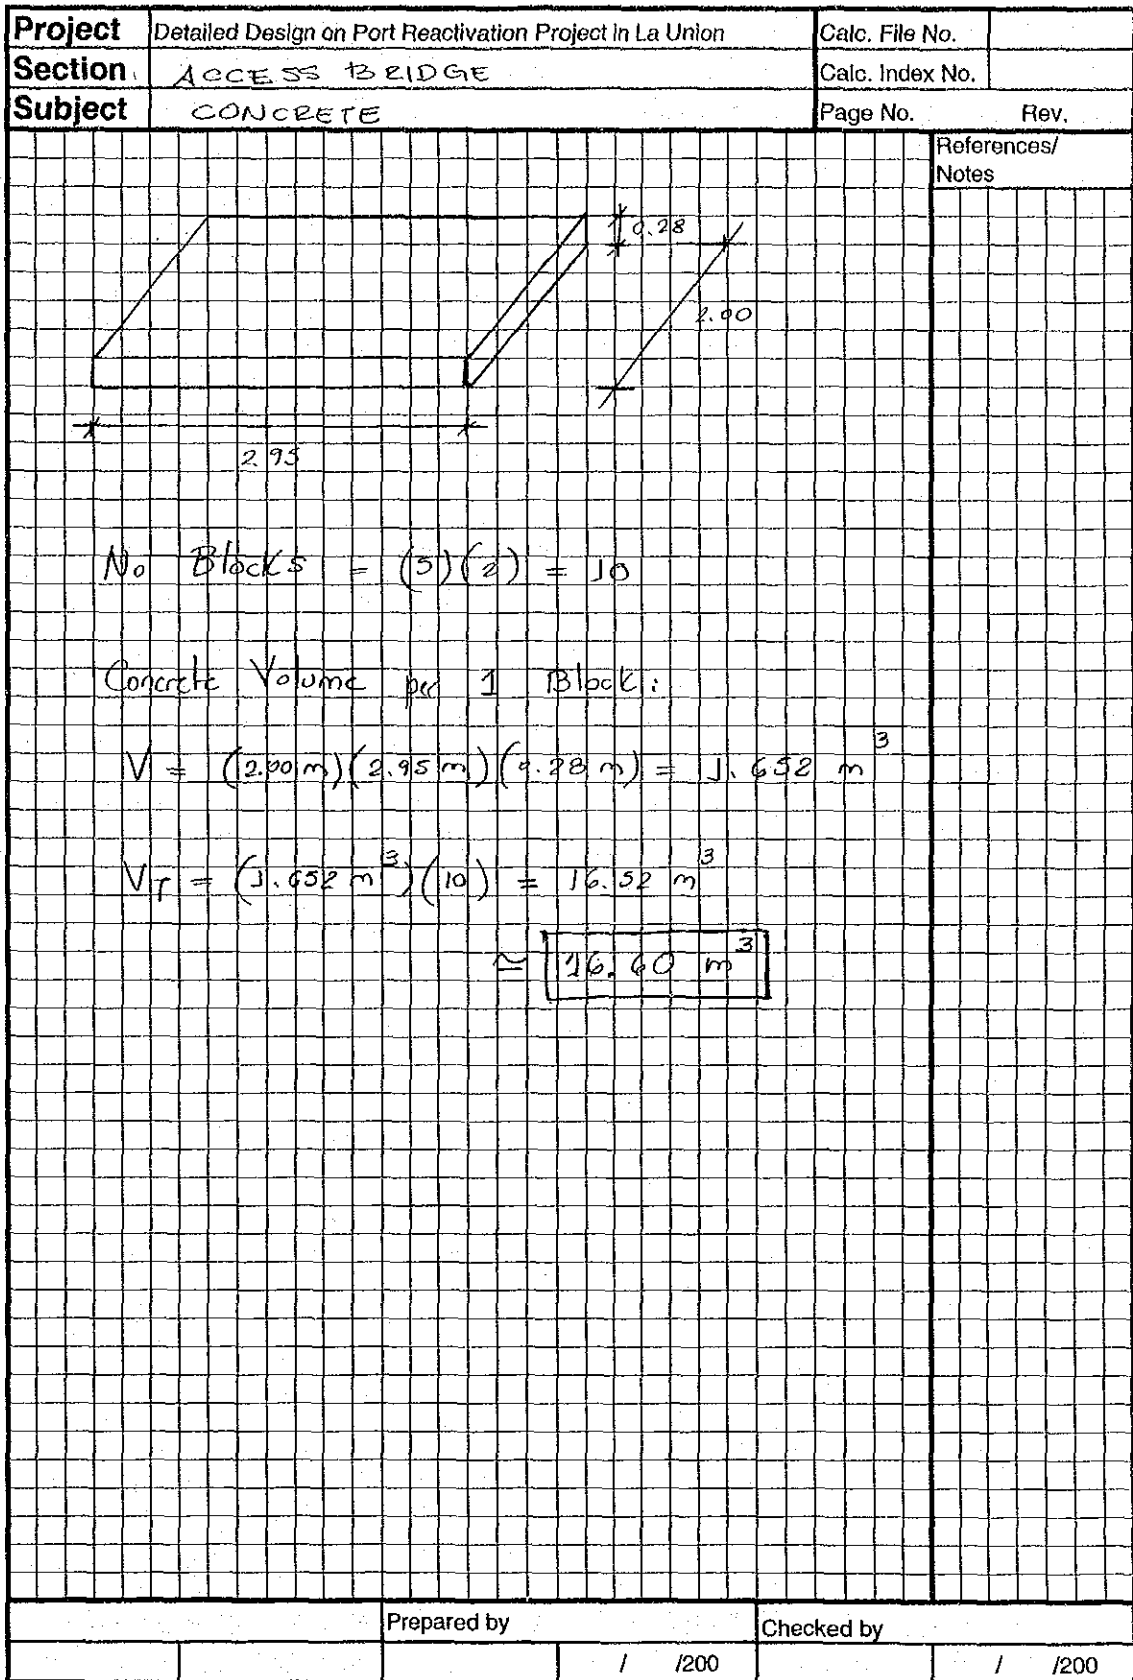 Project Detailed Design on Port Reactivation Project in La Union Calc. File No.
Section ACCESS BRIDGE Calc. Index No.
Subject CONCRETE Page No. Rev.
References/
Notes
0.28
2.00
2.95
No Blocks = (5)(2) = 10
Concrete Volume per 1 Block:
V = (2.00 m)(2.95 m)(0.28 m) = 1.652 m³
VT = (1.652 m³)(10) = 16.52 m³
≃ 16.60 m³
Prepared by Checked by
/ /200 / /200